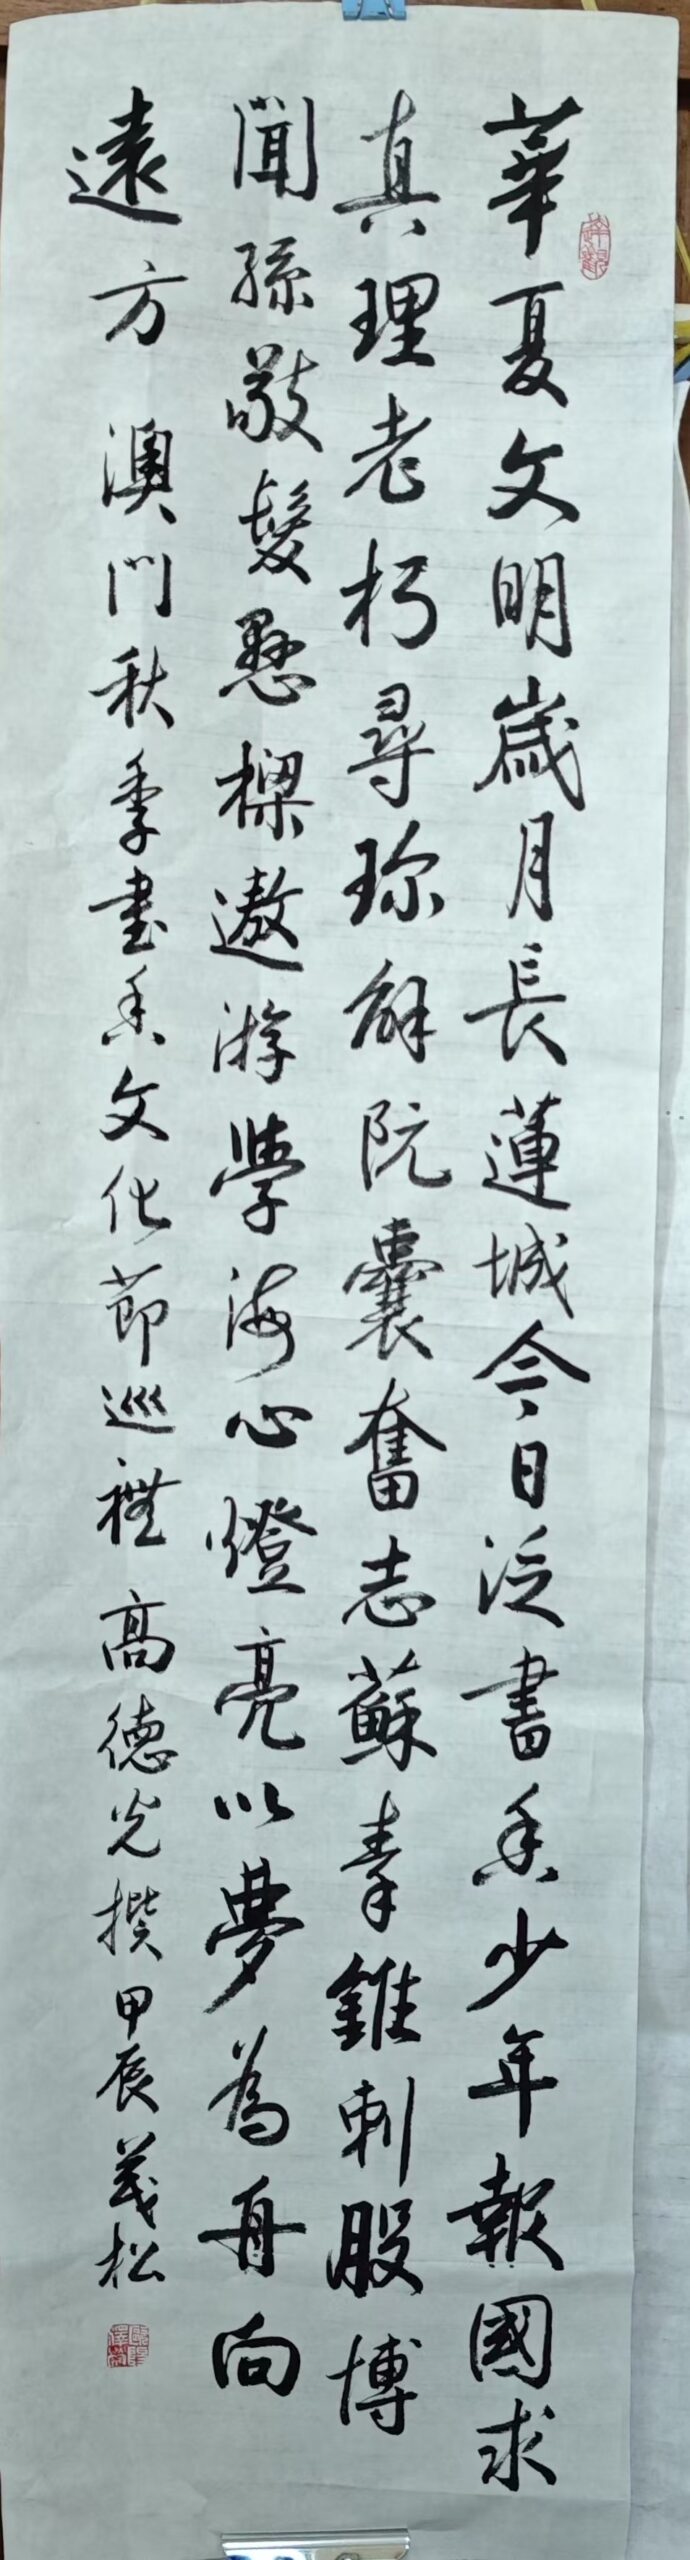 華夏文明歲月長蓮城今日泛書香少年報國求
真理老朽尋珍解阮囊奮志蘇秦錐刺股博
聞孫敬髮懸樑遨游學海心燈亮以夢為舟向
遠方 澳門秋季書香文化節巡禮 高德光撰甲辰義松